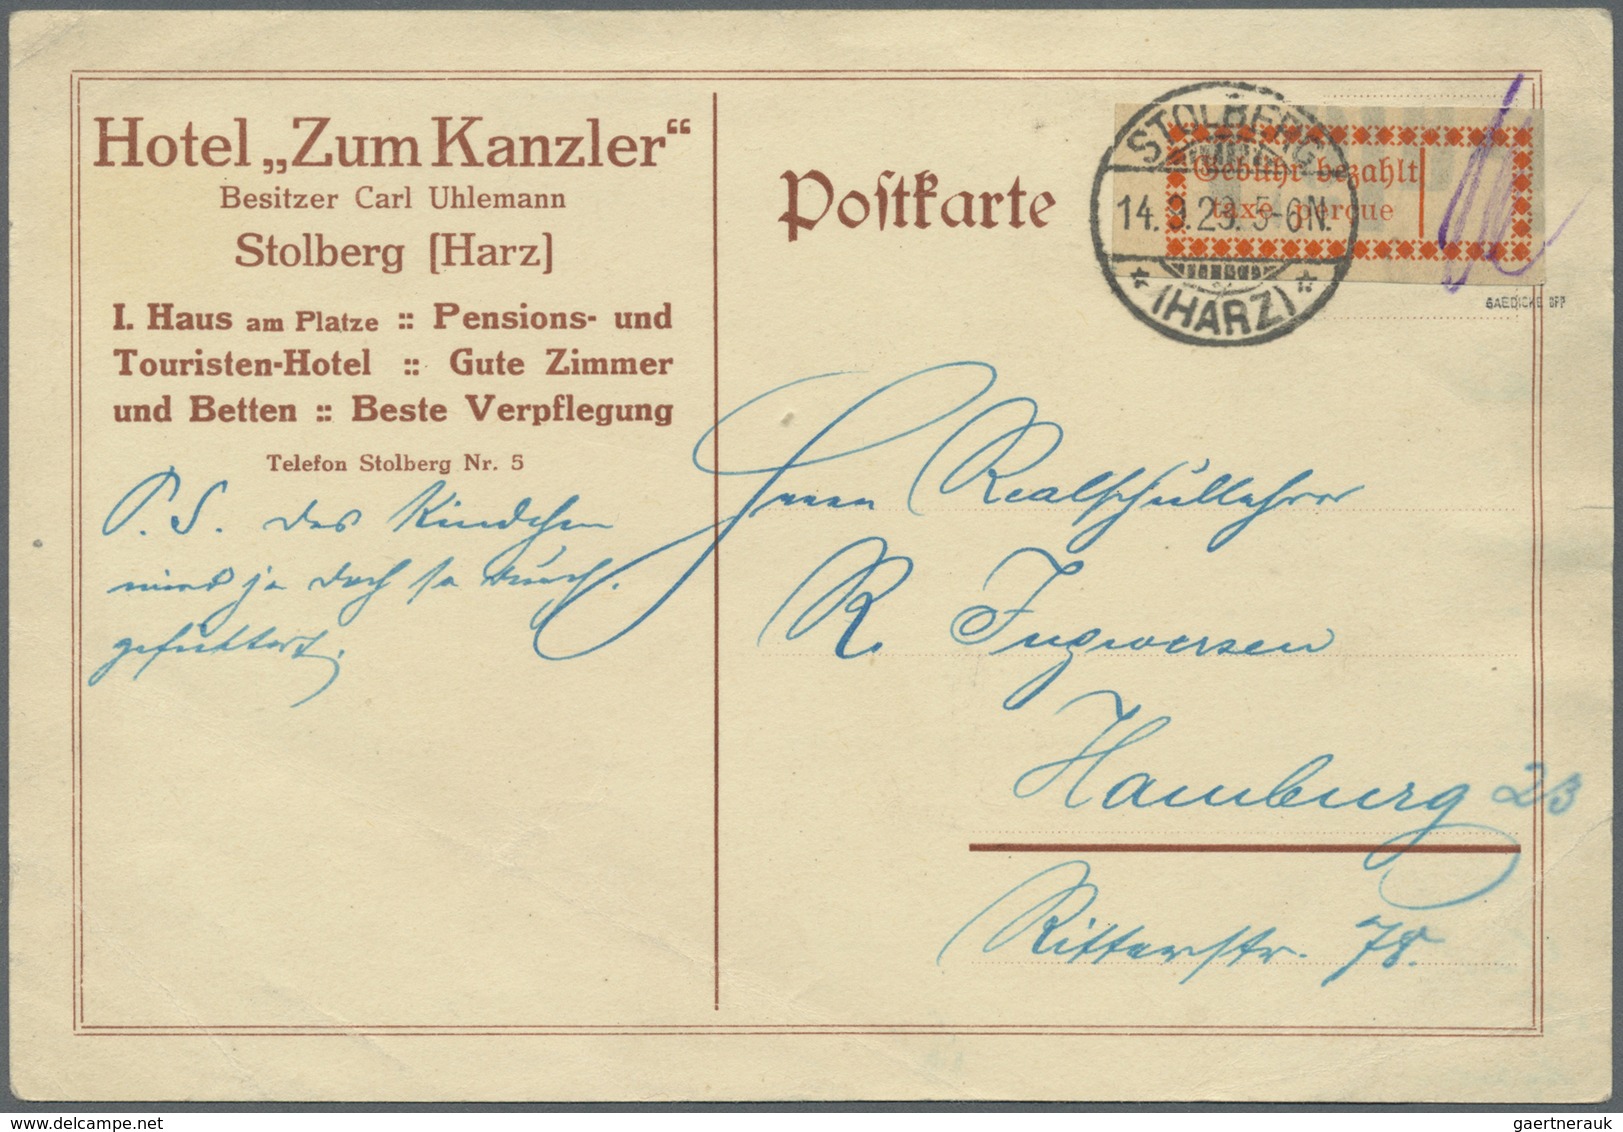 Hotel „Zum Kanzler“
Besitzer Carl Uhlemann
Stolberg [Harz]
I. Haus am Platze :: Pensions- und
Touristen-Hotel :: Gute Zimmer
und Betten :: Beste Verpflegung
Telefon Stolberg Nr. 5
P. S. Das Kindchen
wird ja doch so durch
gefuttert.
Poſtkarte
STOLBERG
14.9.23. 5-6N.
(HARZ)
Gebühr bezahlt
taxe perçue
GAEDICKE BPP
Herrn Realschullehrer
R. Ingwersen
Hamburg 23
Ritterstr. 78.
gaertnerauk / www.delcampe.net